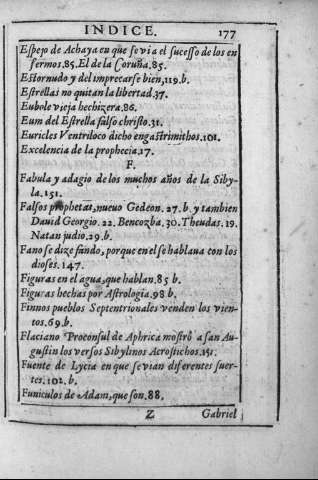 INDICE. 177
Espejo de Achaya en que se via el sucesso de los en
fermos.85. El de la Coruña.85.
Estornudo y del imprecarse bien, 119.b.
Estrellas no quitan la libertad.37.
Eubole vieja hechizera.86.
Eum del Estrella falso christo.31.
Euricles Ventriloco dicho engastrimithos.101.
Excelencia de la prophecia.17.
F.
Fabula y adagio de los muchos años de la Siby-
la.151.
Falsos prophetas, nuevo Gedeon. 27.b. y tambien
David Georgio. 22. Bencozba. 30. Theudas. 19.
Natan judio. 29.b.
Fano se dize fando, porque en el se hablava con los
dioses. 147.
Figuras en el agua, que hablan. 85 b.
Figuras hechas por Astrologia. 98 b.
Finnos pueblos Septentrionales venden los vien-
tos. 69. b.
Flaciano Proconsul de Aphrica mostrò a san Au-
gustin los versos Sibylinos Acrostichos. 151.
Fuente de Lycia en que se vian diferentes suer-
tes. 102. b.
Funiculos de Adam, que son. 88.
Z Gabriel